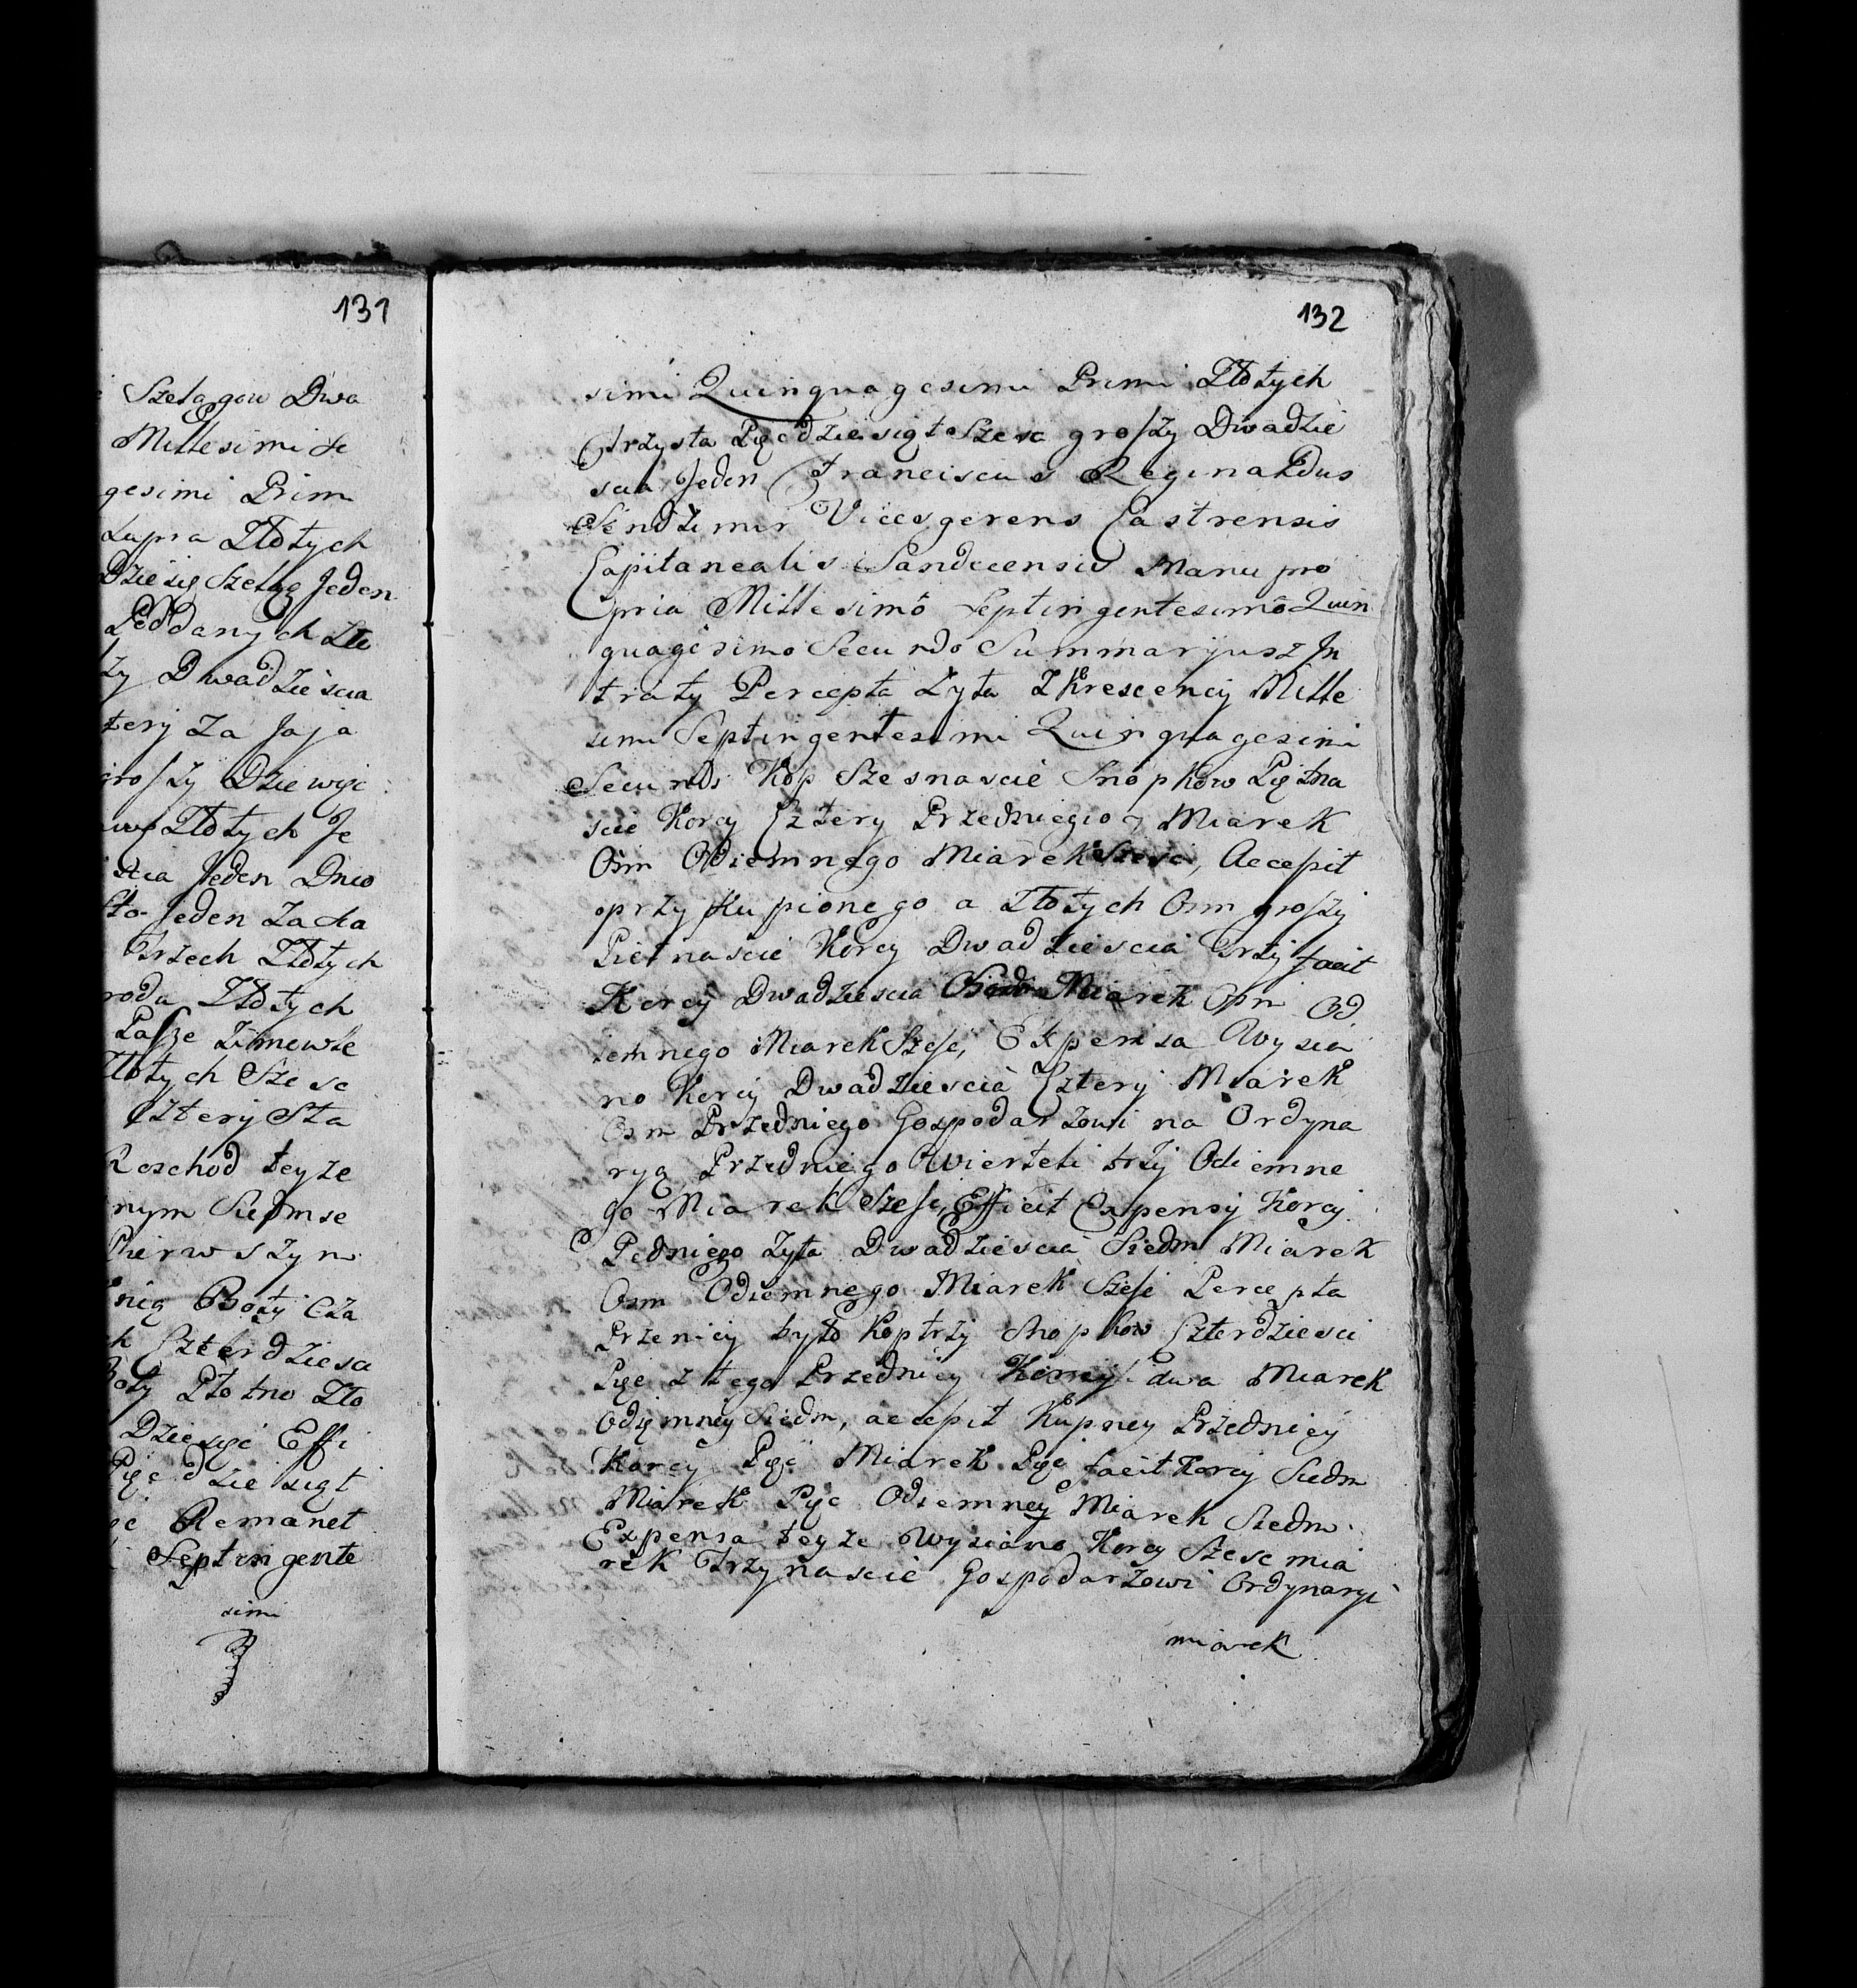 131
Szelągow Dwa
Millesimi Se
gesimi Prim
supra Złotych
Dziesię Szeląg Jeden
Poddanych Zło
ży Dwadzieścia
tery Za Jaja
groszy Dziewięc
Złotych Je
scia Jeden Dnio
Sto Jeden Za
Trzech Złotych
rodu Złotych
Pasze Zimowze
Złotych Szesc
Cztery Sta
Rozchod teyze
nym Siedmse
Pierwszym
nią Boży Cza
h Czterdziesci
Boty Płotno Zło
Dziewięć Effi
Pięcdziesiąt
ie Remanet
Septingente
simi
132
simi Quinquagesimi Primi Złotych
Trzysta Pięcdziesiąt Szesc groszy Dwadzie
scia Jeden Franciscus Reginaldus
Sendzimir Vicesgerens Castrensis
Capitanealis Sandecensis Manu pro
pria Millesimo Septingentesimo Quin
quagesimo Secundo Summaryusz In
traty Percepta Zyta Z Krescency Mille
simi Septingentesimi Quinquagesimi
Secundi Kop Szesnascie Snopkow Piętna
scie Korcy Cztery Przedniego Miarek
Osm Odiemnego Miarek Szesc, Accepit
przykupionego a Złotych Osm groszy
Pietnascie Korcy Dwadziescia Trzy facit
Korcy Dwadziescia Siedm Miarek Osm Od
iemnego Miarek Szesc, Expensa Wysia
no Korcy Dwadziescia Cztery Miarek
Osm Przedniego Gospodarzowi na Ordyna
ryą Przedniego Wierteli trzy Odiemne
go Miarek Szesc, Efficit Expensy Korcy
Pedniego Zyta Dwadziescia Siedm Miarek
Osm Odiemnego Miarek Szesc Percepta
Przenicy było Kop trzy Snopkow Czterdziesci
Pięc z tego Przedniey Korcy dwa Miarek
Odięmney Siedm, accepit Kupney Przedniey
Korcy Pięc Miarek Pięc facit Korcy Siedm
Miarek Pięc Odiemney Miarek Siedm
Expensa teyze Wysiano Korcy Szesc mia
rek Trzynascie Gospodarzowi Ordynaryi
miarek